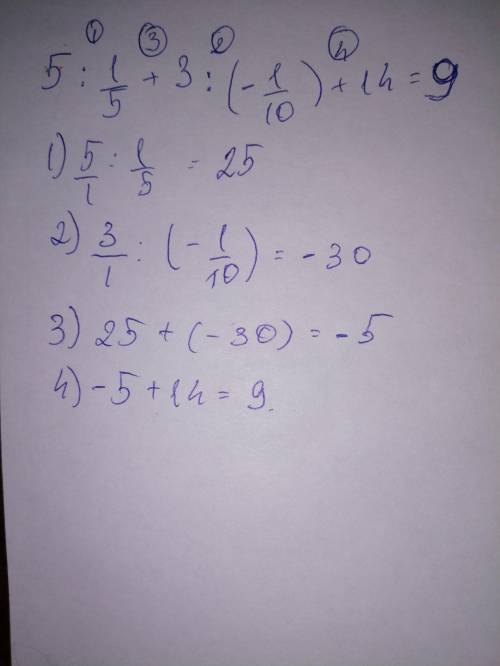 ① ③ ② ④
5 : 1/5 + 3 : (- 1/10) + 14 = 9
1) 5/1 : 1/5 = 25
2) 3/1 : (- 1/10) = - 30
3) 25 + (-30) = - 5
4) - 5 + 14 = 9.